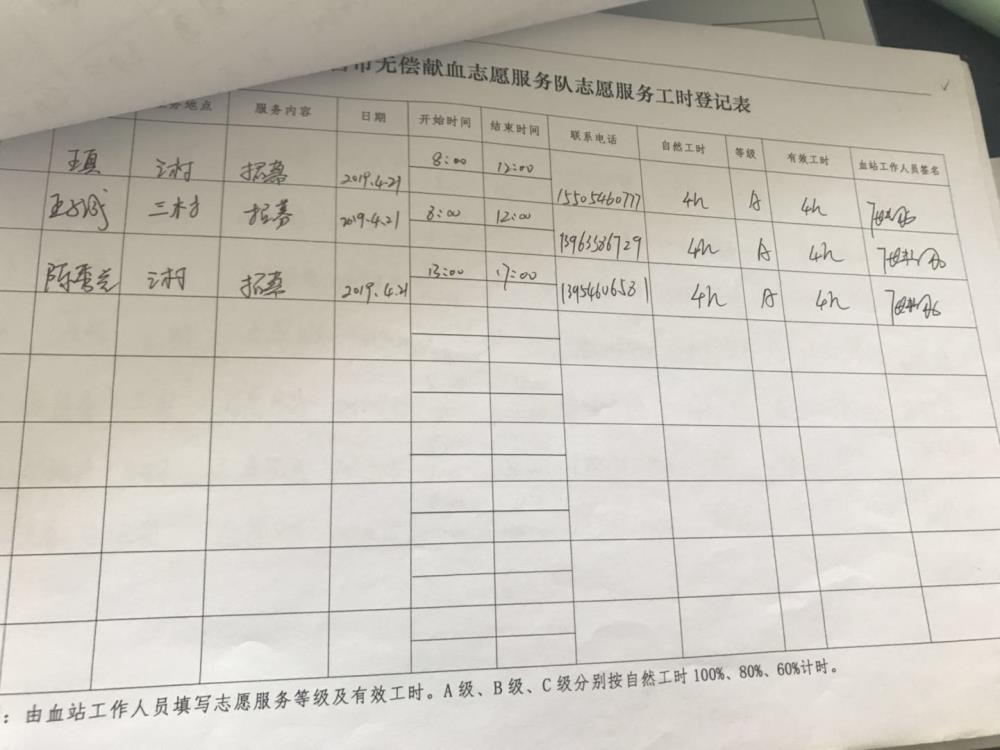 市无偿献血志愿服务队志愿服务工时登记表
地点 服务内容 日期 开始时间 结束时间 联系电话 自然工时 等级 有效工时 血站工作人员签名
王真 三村 招募 2019.4.21 8:00 12:00 15505460777 4h A 4h
三村 招募 2019.4.21 8:00 12:00 13963586729 4h A 4h
陈秀兰 三村 招募 2019.4.21 13:00 17:00 13954606581 4h A 4h
:由血站工作人员填写志愿服务等级及有效工时。A级、B级、C级分别按自然工时100%、80%、60%计时。